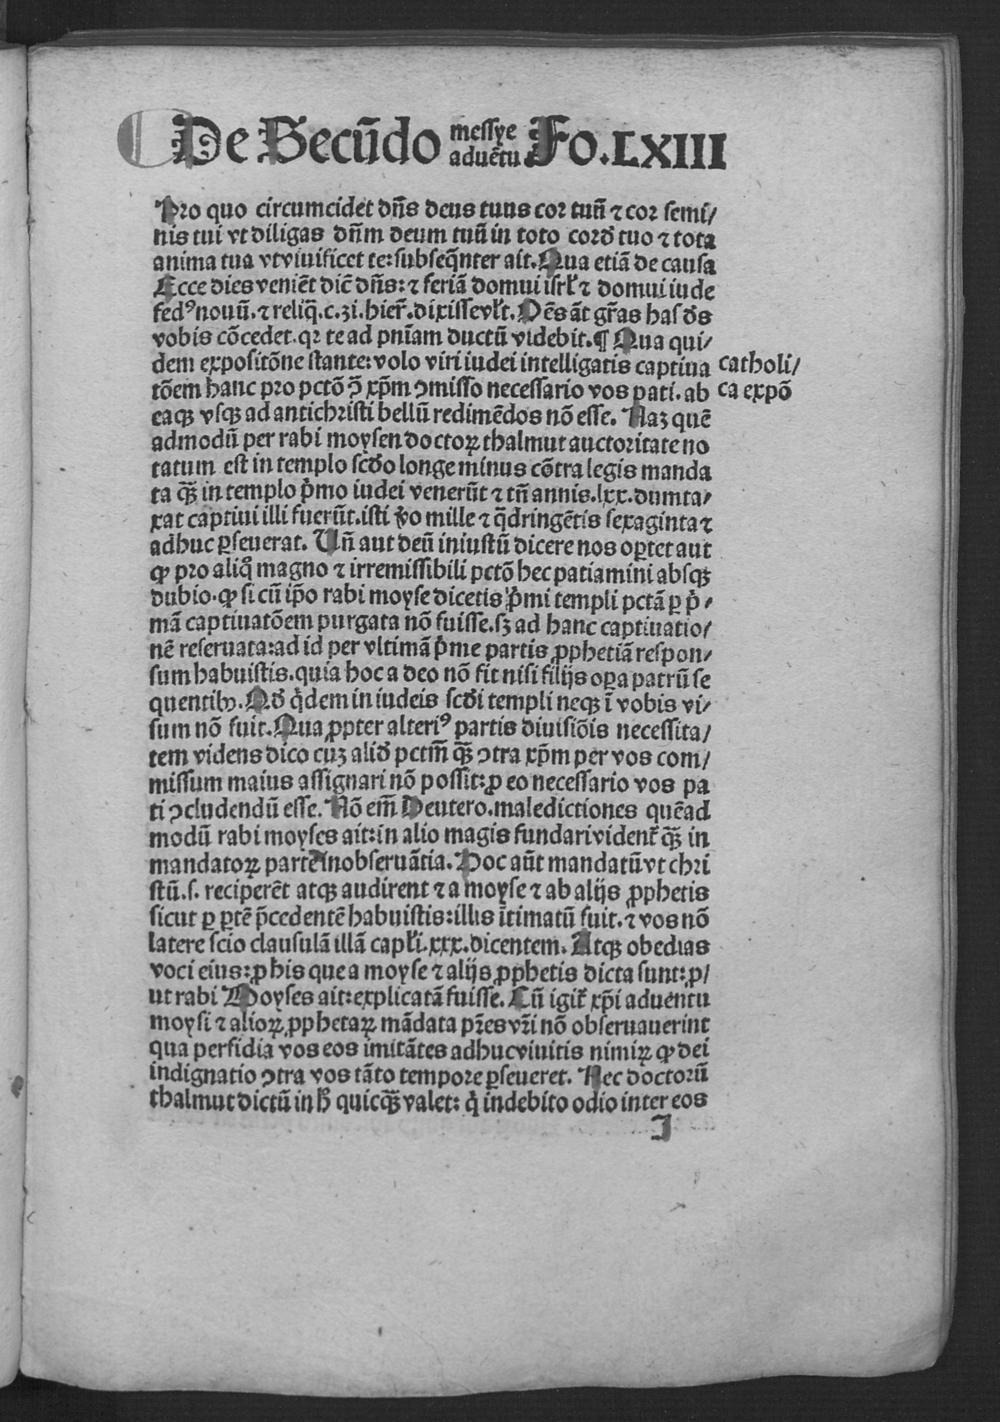 De Secūdo messye aduētu Fo. LXIII
Pro quo circumcidet dn̄s deus tuus cor tuū ⁊ cor semi/
nis tui vt diligas dn̄m deum tuū in toto cord̄ tuo ⁊ tota
anima tua vt viuificet te: subseq̄nter ait. Qua etiā de causa
Ecce dies veniēt dic̄ dn̄s: ⁊ feriā domui isrl̄ ⁊ domui iude
fedꝰ nouū. ⁊ reliq̄. c. 31. hier̄. dixisse vl̄r. Pēs āt gr̄as has d̄s
vobis cōcedet. qꝛ te ad pn̄iam ductū videbit. ¶ Qua qui/
dem expositōne stante: volo viri iudei intelligatis captiua
catholi/
tōem hanc pro pctō ꝯ̄ xp̄m ꝯmisso necessario vos pati. ab
ca expō
eaqꝫ vsqꝫ ad antichristi bellū redimēdos nō esse. Naꝫ quē
admodū per rabi moysen doctoꝝ thalmut auctoritate no
tatum est in templo scd̄o longe minus cōtra legis manda
ta qꝫ̄ in templo p̄mo iudei venerūt ⁊ tn̄ annis. lxx. dumta/
xat captiui illi fuerūt. isti v̄o mille ⁊ q̄dringētis sexaginta ⁊
adhuc ꝑseuerat. Un̄ aut deū iniustū dicere nos oꝑtet aut
ꝙ pro aliq̊ magno ⁊ irremissibili pctō hec patiamini absqꝫ
dubio. ꝙ si cū ip̄o rabi moyse dicetis p̄mi templi pctā ꝑ p̄/
mā captiuatōem purgata nō fuisse. sꝫ ad hanc captiuatio/
nē reseruata: ad id per vltimā p̄me partis ꝓphetiā respon/
sum habuistis. quia hoc a deo nō fit nisi filijs oꝑa patrū se
quentibꝰ. Qd̄ q̇dem in iudeis scd̄i templi neqꝫ ī vobis vi/
sum nō fuit. Qua ꝓpter alteriꝰ partis diuisiōis necessita/
tem videns dico cuꝫ aliud̄ pctm̄ qꝫ̄ ꝯtra xp̄m per vos com/
missum maius assignari nō possit: ꝓ eo necessario vos pa
ti ꝯcludendū esse. Nō em̄ Deutero. maledictiones quēad
modū rabi moyses ait: in alio magis fundari vident̄ qꝫ̄ in
mandatoꝝ parte inobseruātia. Hoc aūt mandatū vt chri
stū. s. reciperēt atqꝫ audirent ⁊ a moyse ⁊ ab alijs ꝓphetis
sicut ꝑ ꝑtē p̄cedentē habuistis: illis ītimatū fuit. ⁊ vos nō
latere scio clausulā illā capl̄i. xxx. dicentem. Atqꝫ obedias
voci eius: ꝓ his que a moyse ⁊ alijs ꝓphetis dicta sunt: ꝓ/
ut rabi Moyses ait: explicatā fuisse. Cū igit̄ xp̄i aduentu
moysi ⁊ alioꝝ ꝓphetaꝝ mādata pr̄es vr̄i nō obseruauerint
qua perfidia vos eos imitātes adhuc viuitis nimiꝝ ꝙ dei
indignatio ꝯtra vos tāto tempore ꝑseueret. Nec doctorū
thalmut dictū in h̄ quicqꝫ̄ valet: q̇ indebito odio inter eos
I